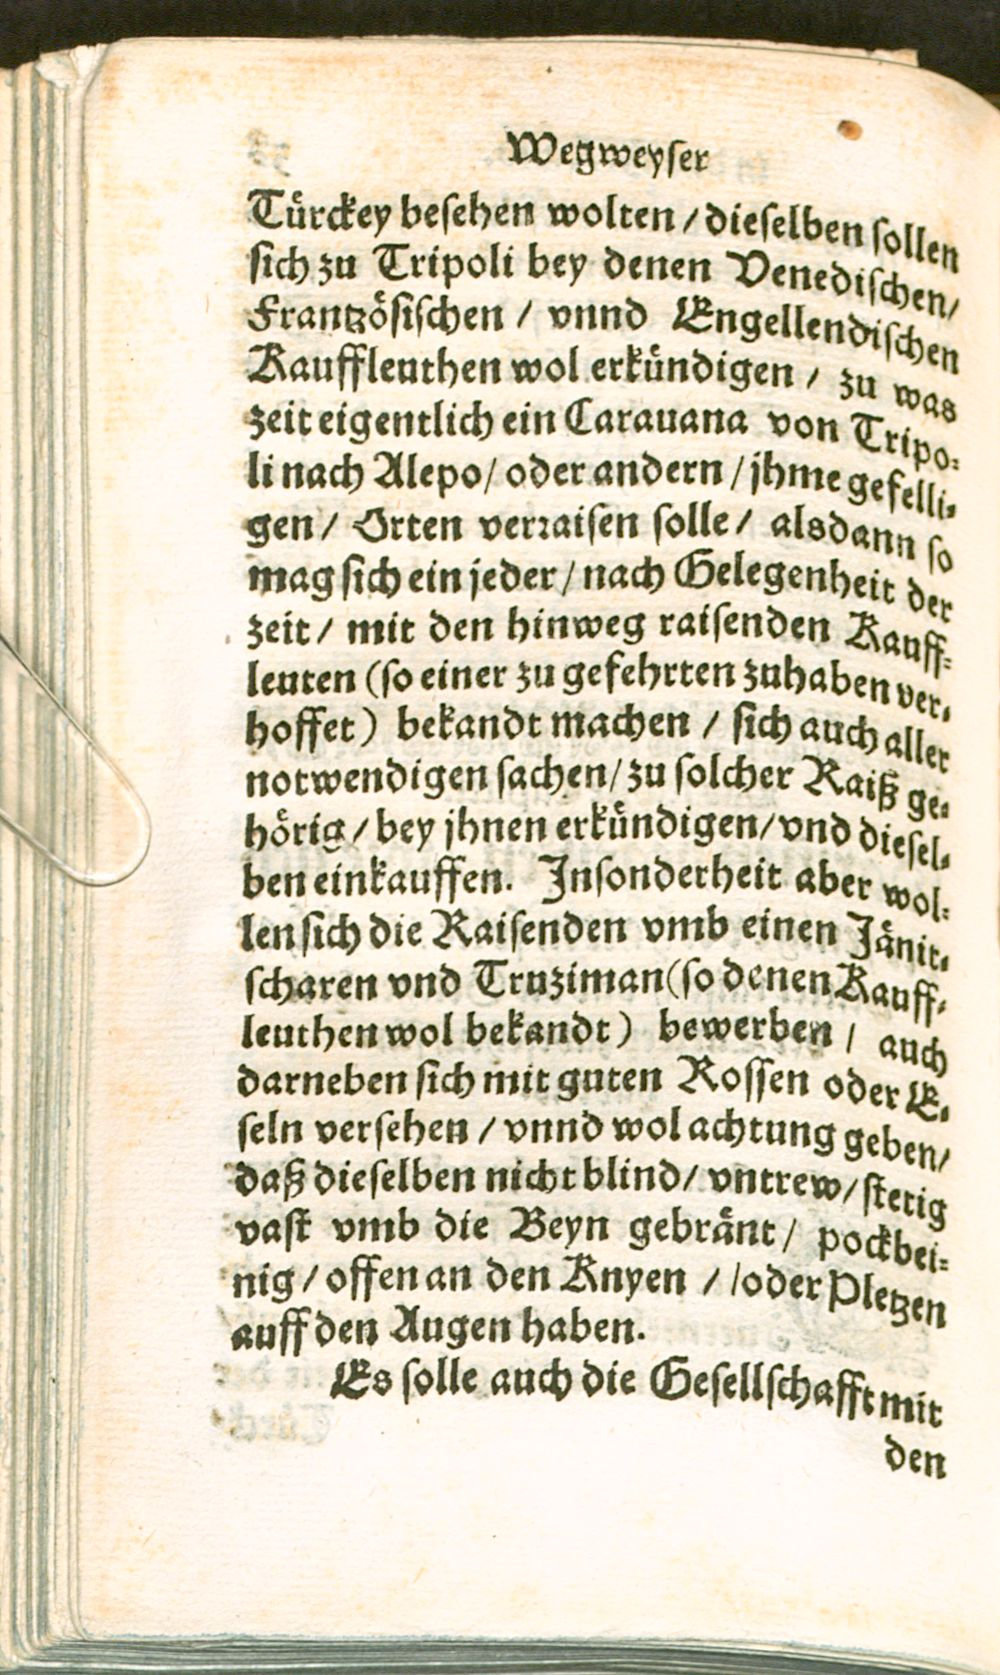 Wegweyser
Türckey besehen wolten / dieselben sollen
sich zu Tripoli bey denen Venedischen/
Frantzösischen / vnnd Engellendischen
Kauffleuthen wol erkündigen / zu was
zeit eigentlich ein Carauana von Tripo-
li nach Alepo/ oder andern / jhme gefelli-
gen / Orten verraisen solle / alsdann so
mag sich ein jeder / nach Gelegenheit der
zeit / mit den hinweg raisenden Kauff-
leuten (so einer zu gefehrten zuhaben ver-
hoffet) bekandt machen / sich auch aller
notwendigen sachen/ zu solcher Raiß ge-
hörig / bey jhnen erkündigen/ vnd diesel-
ben einkauffen. Insonderheit aber wol-
len sich die Raisenden vmb einen Jänit-
scharen vnd Truziman (so denen Kauff-
leuthen wol bekandt) bewerben / auch
darneben sich mit guten Rossen oder E-
seln versehen / vnnd wol achtung geben/
daß dieselben nicht blind/ vntrew/ stetig
vast vmb die Beyn gebränt / pockbei-
nig / offen an den Knyen / /oder Pletzen
auff den Augen haben.
Es solle auch die Gesellschafft mit
den